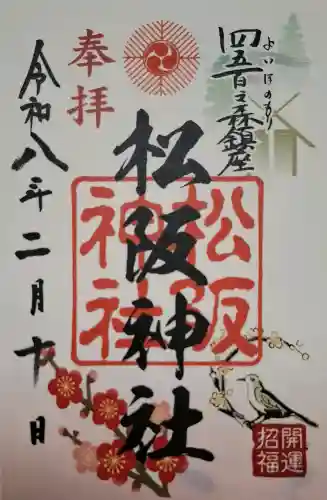 四五百之森鎮座
よいほのもり
奉拝
松阪神社
松阪神社
令和八年二月十一日
開運招福